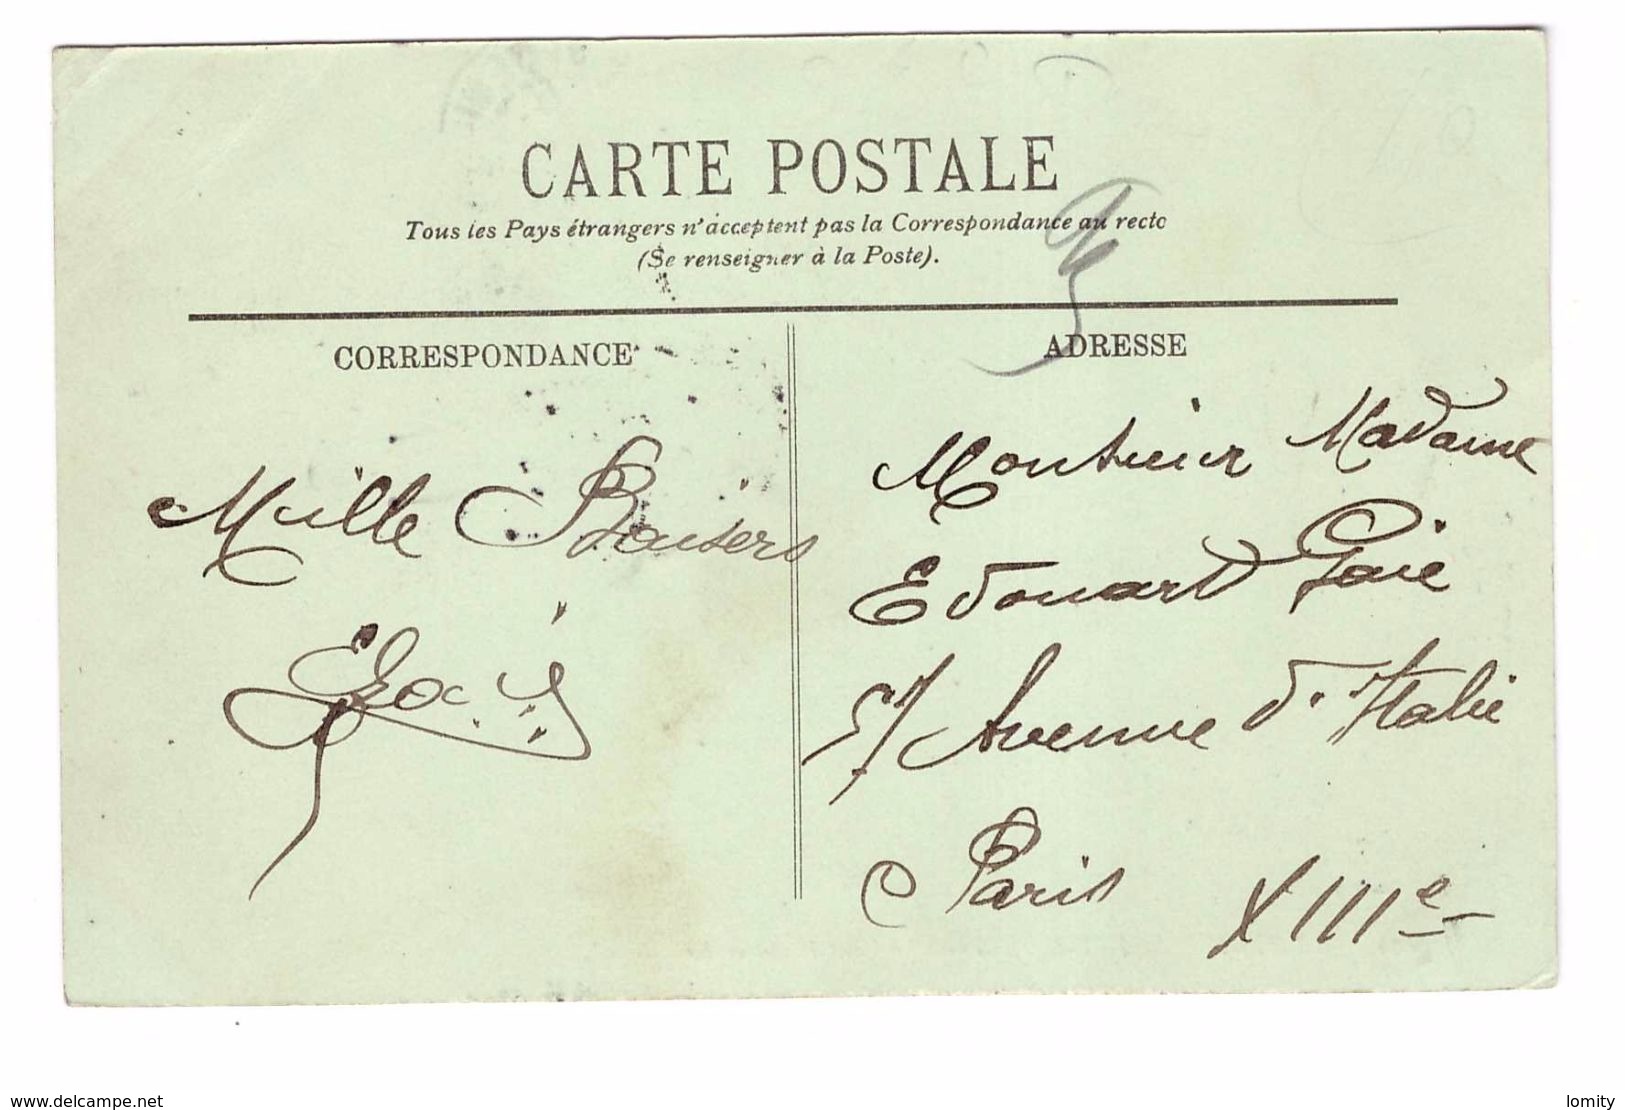 CARTE POSTALE
Tous les Pays étrangers n'acceptent pas la Correspondance au recto
(Se renseigner à la Poste).
CORRESPONDANCE
Mille Baisers
ADRESSE
Monsieur Madame
Edouard
Avenue d'Italie
Paris XIIIe
www.delcampe.net
lomity